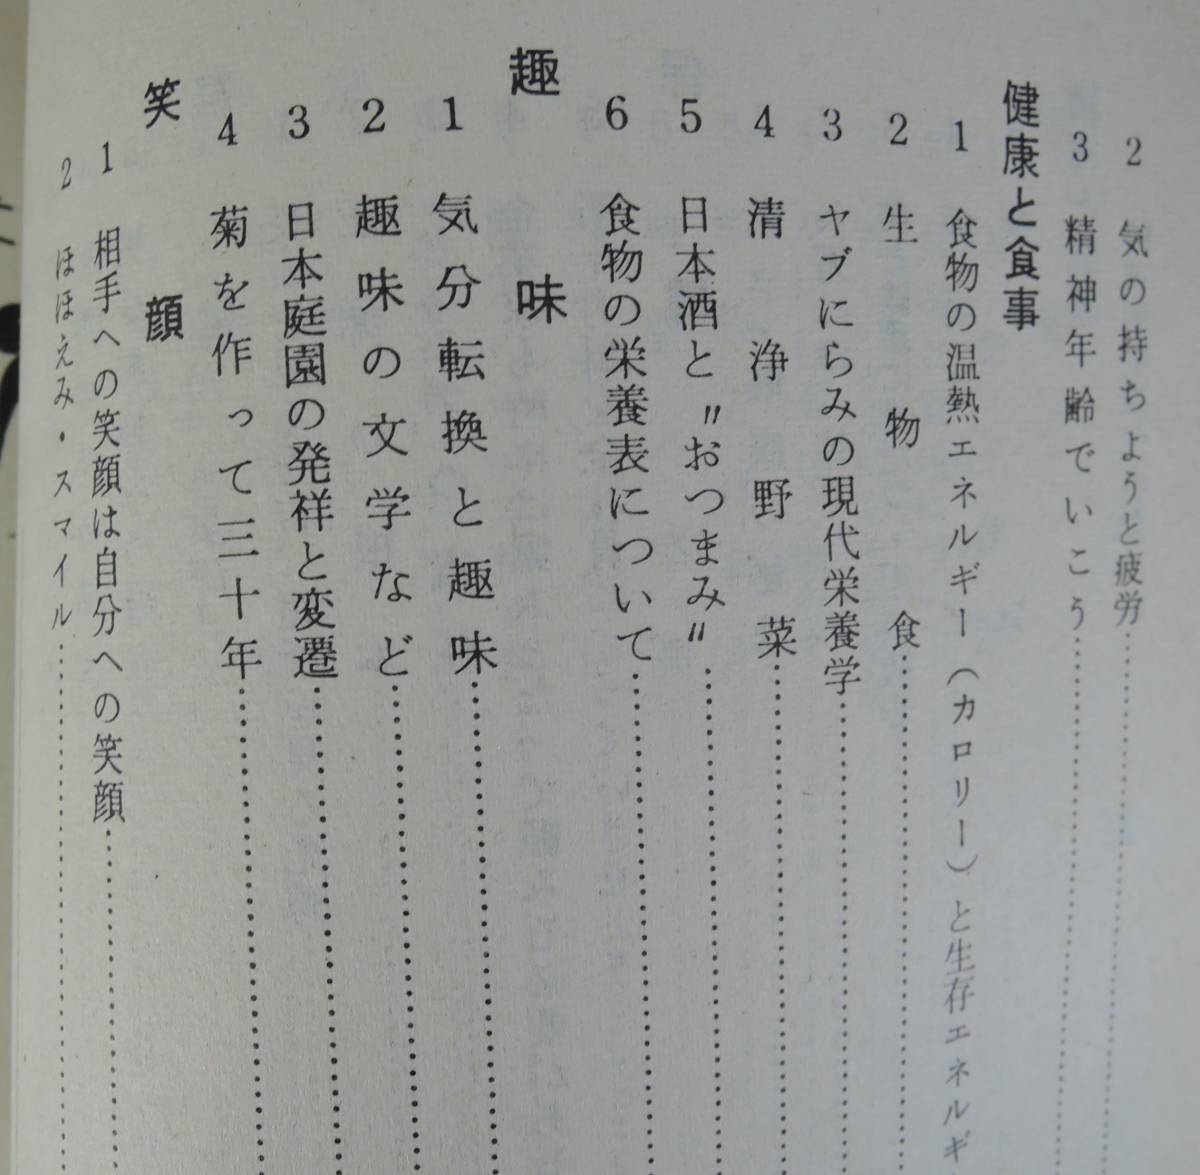 2 気の持ちようと疲労
3 精神年齢でいこう
健康と食事
1 食物の温熱エネルギー（カロリー）と生存エネルギ
2 生物食
3 ヤブにらみの現代栄養学
4 清浄野菜
5 日本酒と〃おつまみ〃
6 食物の栄養表について
趣味
1 気分転換と趣味
2 趣味の文学など
3 日本庭園の発祥と変遷
4 菊を作って三十年
笑顔
1 相手への笑顔は自分への笑顔
2 ほほえみ・スマイル